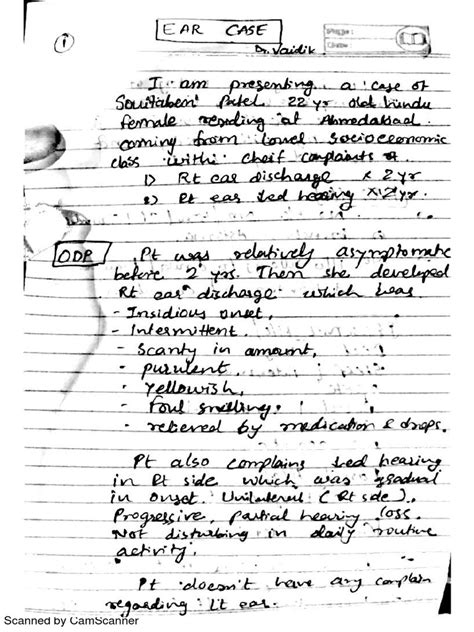 1
EAR CASE
Dr. Vaidik
I am presenting a case of
Savitaben Patel 22 yr old hindu
female residing at Ahmedabad
coming from lower socioeconomic
class with cheif complaints of
1) Rt ear discharge x 2 yr
2) Rt ear ↓ed hearing x 2 yr.
ODP
Pt was relatively asymptomatic
before 2 yrs. Then she developed
Rt ear discharge which was
- Insidious onset,
- Intermittent.
- Scanty in amount,
- purulent
- Yellowish,
- foul smelling.
- relieved by medication & drops.
Pt also complains ↓ed hearing
in Rt side which was gradual
in onset. Unilateral (Rt side).
Progressive, partial hearing loss.
Not disturbing in daily routine
activity.
Pt doesn't have any complain
regarding Lt ear.
Scanned by CamScanner